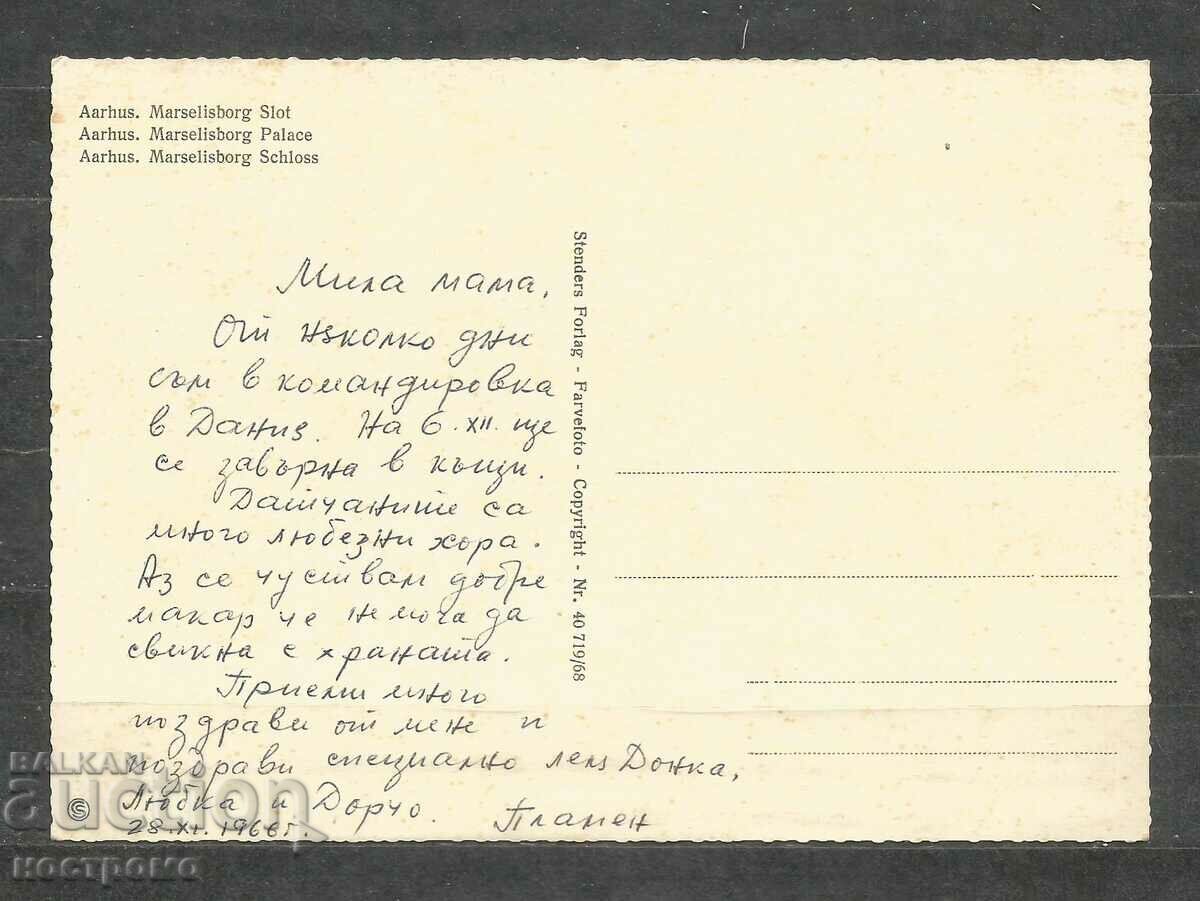 Aarhus. Marselisborg Slot
Aarhus. Marselisborg Palace
Aarhus. Marselisborg Schloss
Stenders Forlag - Farvefoto - Copyright - Nr. 40 719/68
Мила мама,
От няколко дни
съм в командировка
в Дания. На 6.XII. ще
се завърна в къщи.
Датчаните са
много любезни хора.
Аз се чуствам добре
макар че не мога да
свикна с храната.
Приеми много
поздрави от мене и
поздрави специално леля Донка,
Любка и Дорчо. Пламен
28.XI.1966г.
BALKAN
auction
костромо